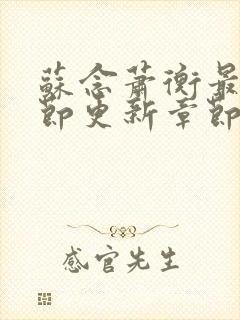 蘇念蕭衡最
節更新章節
感官先生